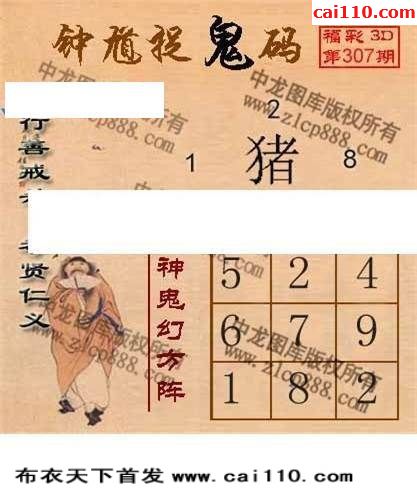 cai110.com
钟馗捉鬼码
福彩3D
第307期
中龙图库版权所有
www.zlcp888.com
2
1 猪 8
行善戒
贤仁义
神鬼幻方阵
5 2 4
6 7 9
1 8 2
中龙图库版权所有
www.zlcp888.com
布衣天下首发 www.cai110.com